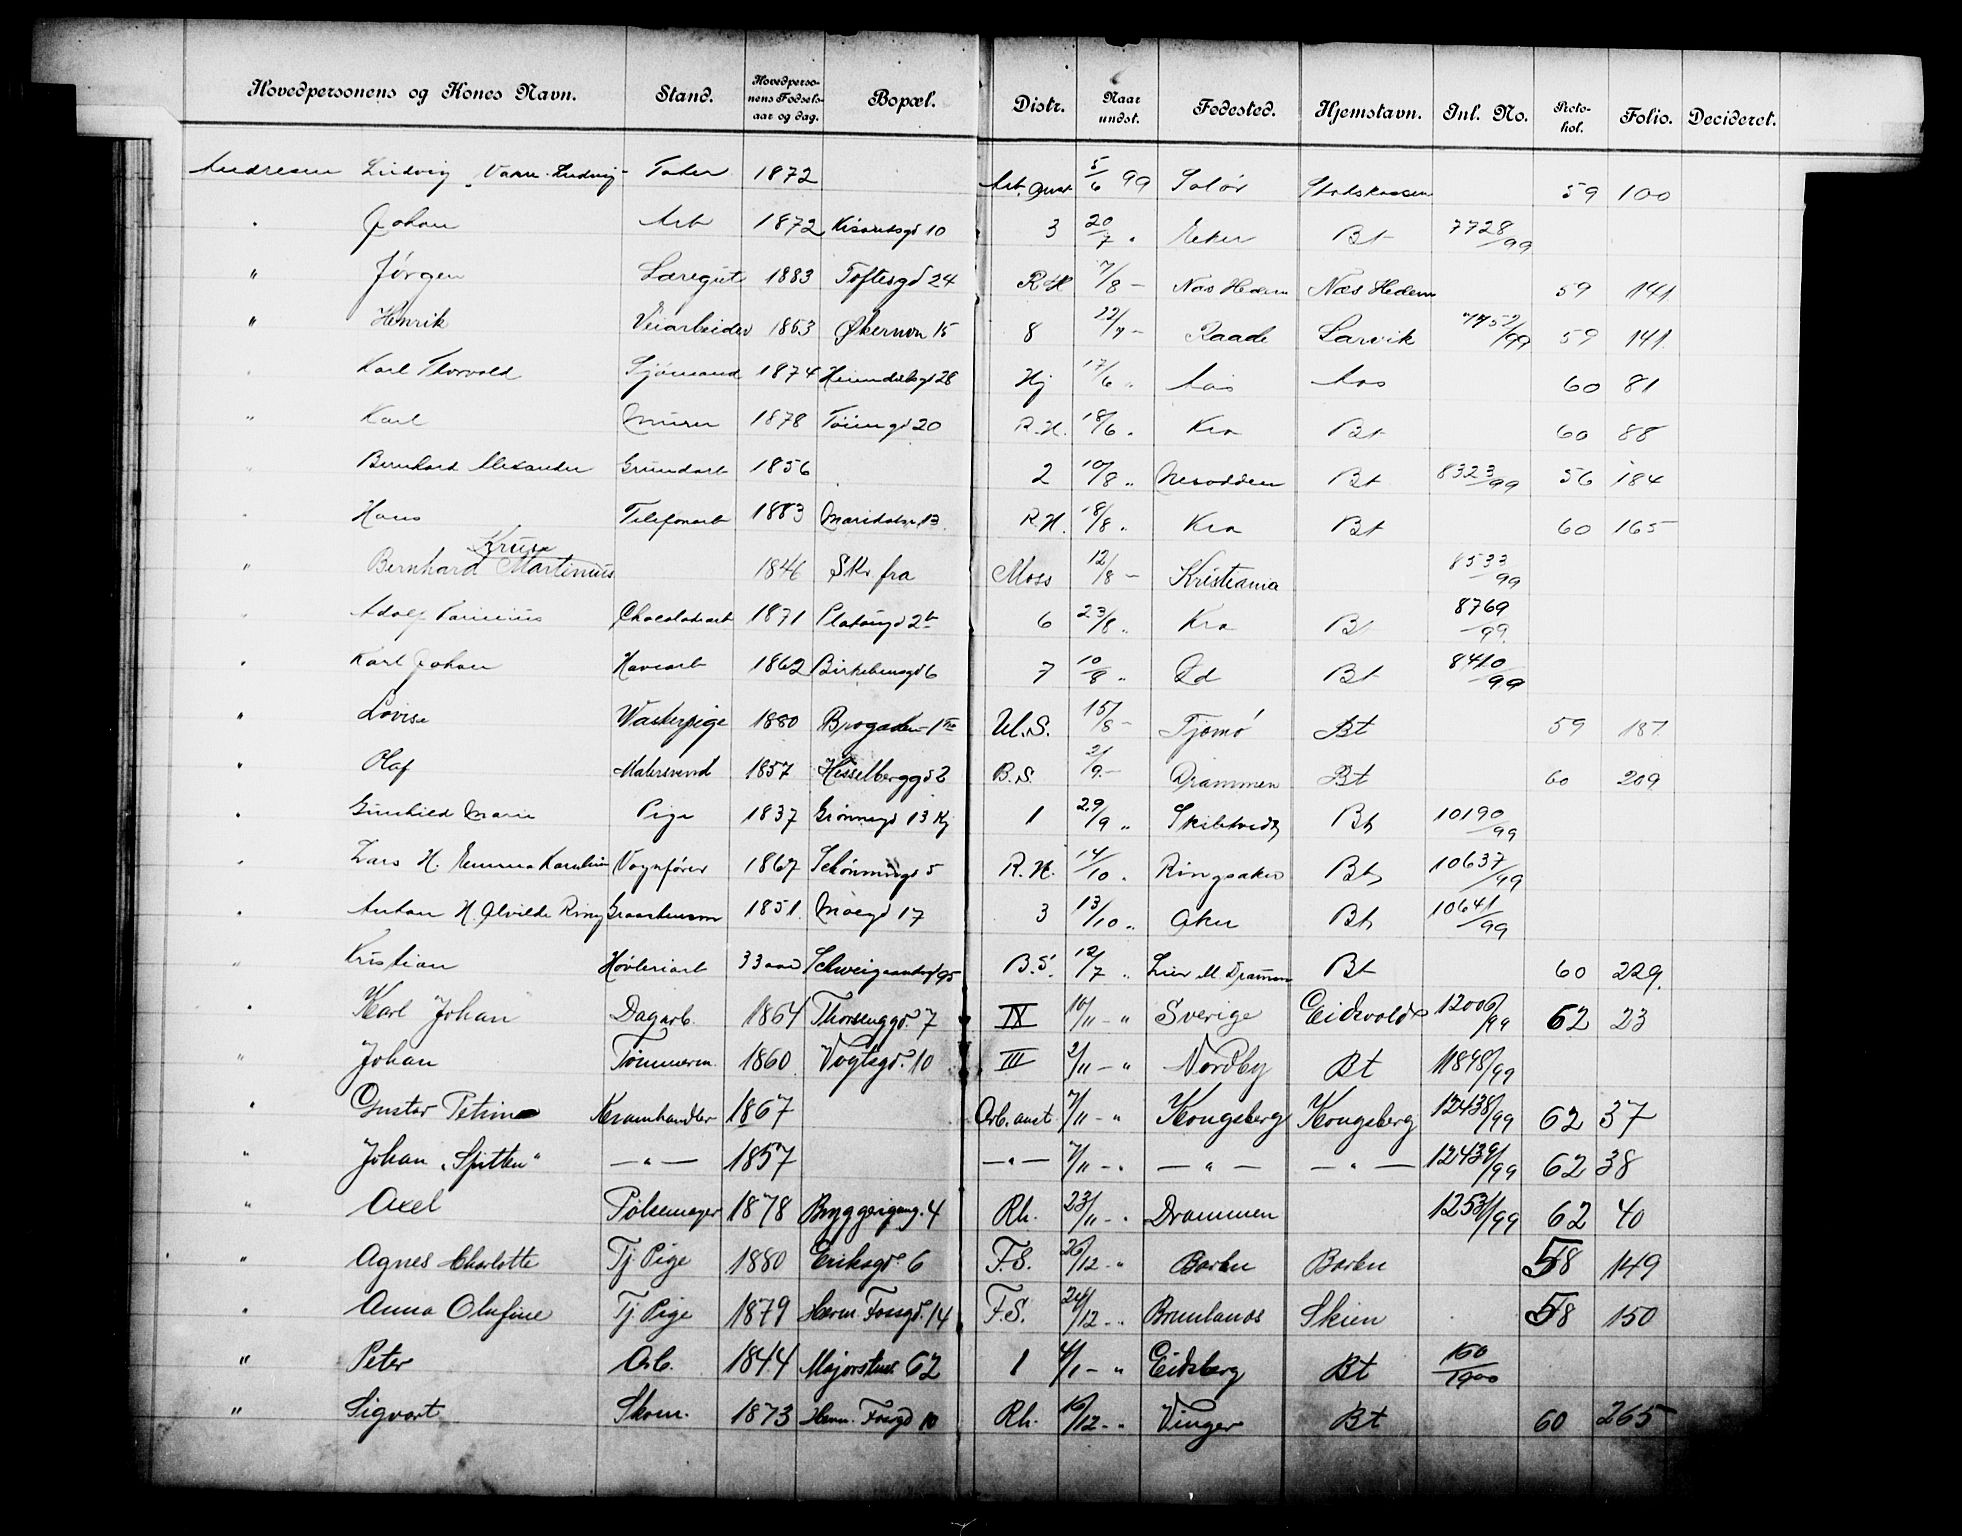 Hovedpersonens og Kones Navn. Stand. Hovedpersonens Fødselsaar og dag. Bopæl. Distr. Naar undst. Fødested. Hjemstavn. Inl. No. Protokol. Folio. Decideret.
Andresen Ludvig „Vasse-Ludvig" Tater 1872 Arb. anst 5/6 99 Solør Statskassen 59 100
" Johan Arb 1872 10 3 20/7 " Eker Bt 7728/99
" Jørgen Læregut 1883 Toftesgd 24 R.H 7/8 — Næs Hedem Næs Hedem 59 141
" Henrik Veiarbeider 1853 Økernvn 15 8 22/7 — Raade Larvik 7752/99 59 141
Karl Thorvald Sjømand 1874 Heimdalsgd 28 Hj 17/6 " Aas Aas 60 81
" Karl Murer 1878 Tøiengd 20 R.H. 18/6 " Kra Bt 60 88
" Bernhard Alexander Grundarb 1856 2 10/8 " Nesodden Bt 8323/99 56 184
" Hans Telefonarb 1883 Maridalsv. 13 R.H. 18/8 " Kra Bt 60 165
" Bernhard Kruse Martinius 1846 Skr fra Moss 12/8 — Kristiania 8533/99
" Adolf Chocoladearb 1871 Platousgd 2b 6 23/8 " Kra Bt 8769/99
" Karl Johan Havearb 1862 Birkebeinsgd 6 7 10/8 " Bt 8410/99
" Lovise Vaskerpige 1880 Brogaden 1 Ul. S. 15/8 — Tjømø Bt 59 187
" Olaf Malersvend 1857 Hesselberggd 2 B. S. 21/9 — Drammen Bt 60 209
" Gunhild Marie Pige 1837 Grønnegd 13 Kj 1 29/9 " Skibtvedt Bt 10190/99
" Lars H. Emma Karoline Vognfører 1867 Schønningsgd 5 R.H. 14/10 " Ringsaker Bt 10637/99
" Anton H. Alvilde Ring Graastensm 1851 Moegd 17 3 13/10 " Aker Bt 10641/99
" Kristian Høvleriarb 33 aar Schweigaardsgd 95 B.S. 12/7 " Lier v. Drammen Bt 60 229
" Karl Johan Dagarb. 1864 Thorsenggd. 7 IX 10/11 — " Sverige Eidsvold 12006/99 62 23
" Johan Tømmerm. 1860 Vogtsgd. 10 III 2/11 — " Nordby Bt 11848/99
" Gustav Kramhandler 1867 Arb. anst 7/11 — " Kongsberg Kongsberg 12438/99 62 37
" Johan „Spitten" — " — 1857 — " — 7/11 — " — " — — " — 12439/99 62 38
" Axel Pølsemager 1878 Bryggerigang. 4 Rh. 23/11 — " Drammen 12531/99 62 40
" Agnes Charlotte Tj. Pige 1880 Eriksgd. 6 F.S. 26/12 — " Borten Borten 58 149
" Anna Olufine Tj. Pige 1879 Herm. Fossgd. 14 F.S. 24/12 — " Brunlanes Skien 58 150
" Peter Arb. 1844 Majorstuv 62 1 4/1 — " Eidsberg Bt 160/1900
" Sigvart Skom. 1873 Herm. Fossgd 10 Rh. 16/12 — " Vinger Bt 60 265